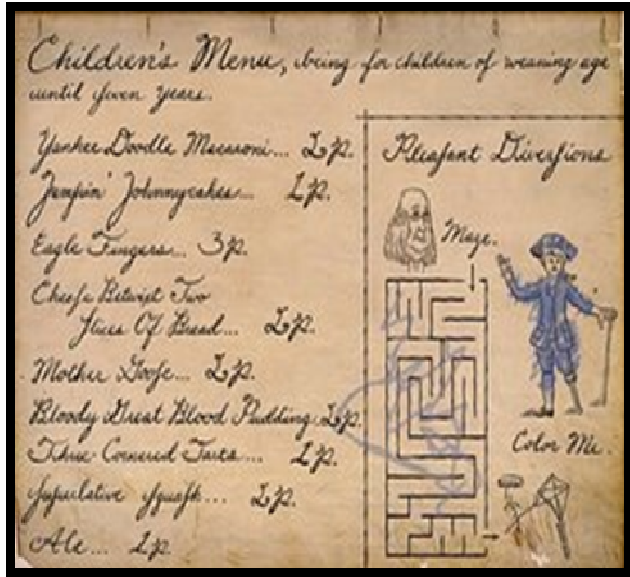 Children's Menu, being for children of weaning age
until ſeven years.
Yankee Doodle Macaroni... 2p.
Jumpin' Johnnycakes... 1p.
Eagle Fingers... 3p.
Cheeſe Betwixt Two
Slices Of Bread... 2p.
Mother Gooſe... 2p.
Bloody Great Blood Pudding 2p.
Three Cornered Tarts... 1p.
Superlative Squaſh... 2p.
Ale... 1p.
Pleaſant Diverſions
Maze.
Color Me.